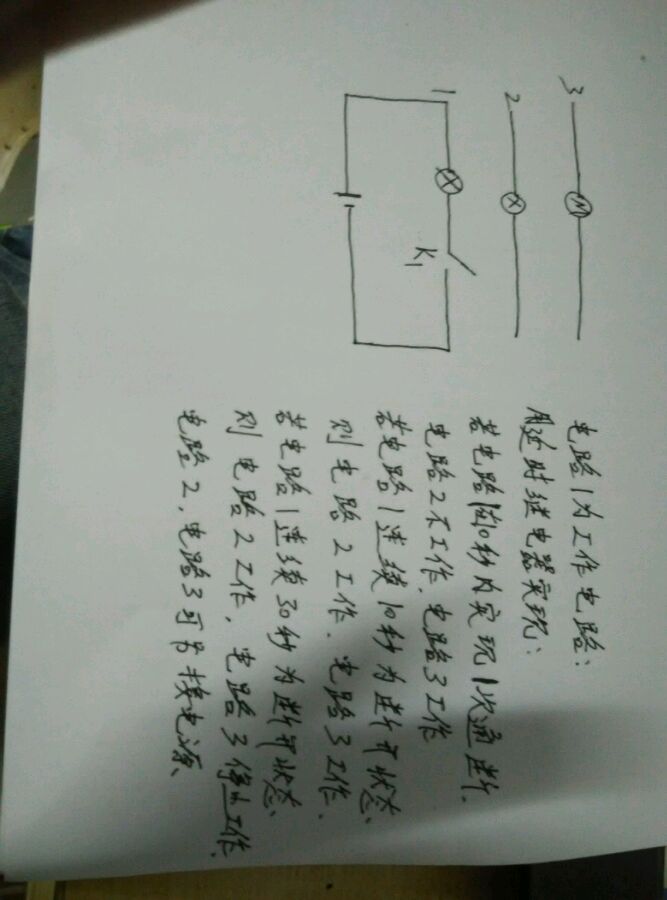 3
M
2
1
K1
电路1为工作电路:
用延时继电器实现:
若电路1在10秒内实现1次通断.
电路2不工作,电路3工作
若电路1连续10秒为断开状态、
则电路2工作.电路3工作.
若电路1连续30秒为断开状态、
则电路2工作,电路3停止工作.
电路2,电路3可另接电源、